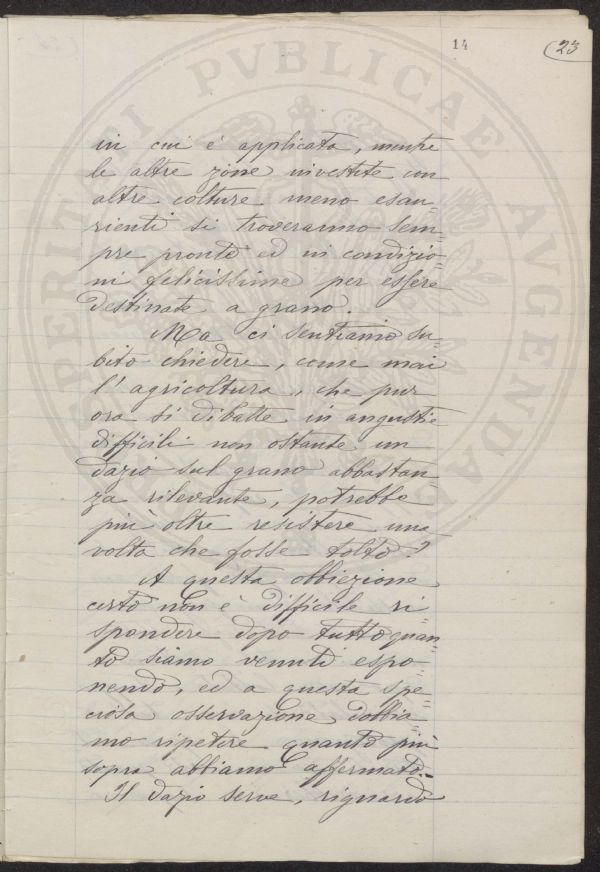 14
(23
in cui è applicata, mentre
le altre zone investite con
altre colture meno esau=
rienti si troveranno sem=
pre pronte ed in condizio=
ni felicissime per essere
destinate a grano.
Ma ci sentiamo su=
bito chiedere, come mai
l'agricoltura, che pur
ora si dibatte in angustie
difficili non ostante un
dazio sul grano abbastan
za rilevante, potrebbe
più oltre resistere una
volta che fosse tolto?
A questa obbiezione
certo non è difficile ri=
spondere dopo tutto quan=
to siamo venuti espo=
nendo, ed a questa spe=
ciosa osservazione dobbia=
mo ripetere quanto più
sopra abbiamo affermato.
Il dazio serve, riguardo
PERITATI PVBLICAE AVGENDAE